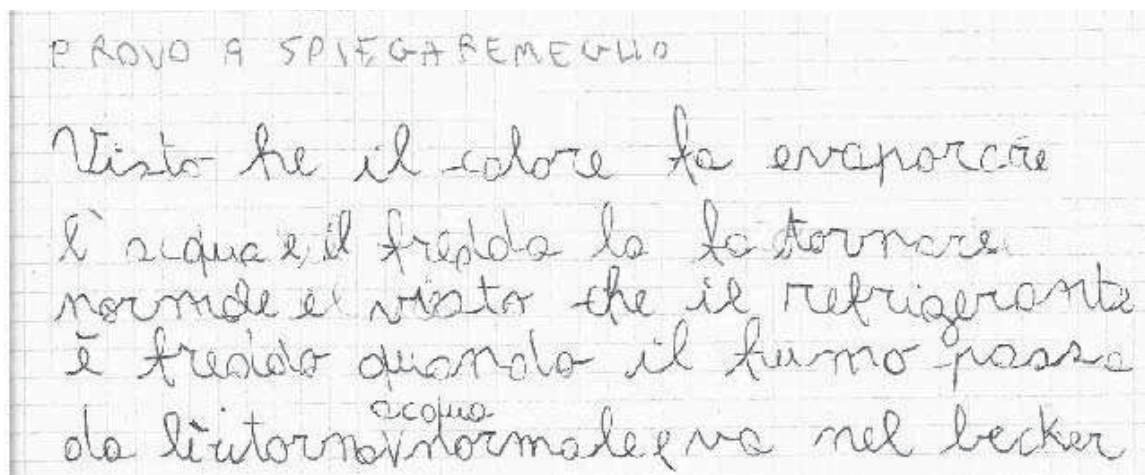 PROVO A SPIEGAREMEGLIO
Visto he il calore fa evaporare
l'acqua e il freddo la fa tornare
normale e visto che il refrigerante
è freddo quando il fumo passa
da lì ritorna acqua normale e va nel becker